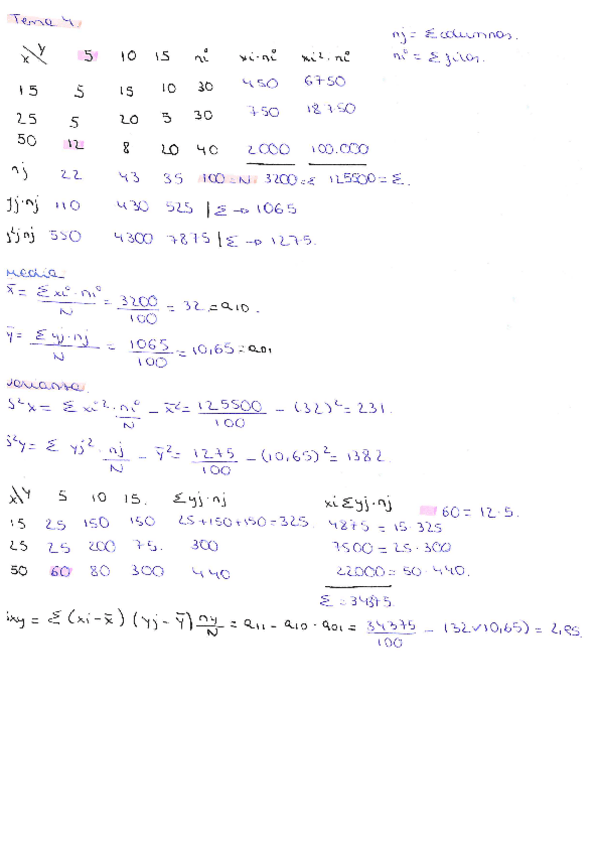 Tema 4.
nj = Σ columnas.
ni = Σ filas.
x\y 5 10 15 ni xi·ni xi²·ni
15 5 15 10 30 450 6750
25 5 20 5 30 750 18750
50 12 8 20 40 2000 100.000
nj 22 43 35 100=N 3200=Σ 125500=Σ.
yj·nj 110 430 525 | Σ → 1065
y²jnj 550 4300 7875 | Σ → 1275.
media
x̄ = Σxi·ni / N = 3200 / 100 = 32 = a10.
ȳ = Σyj·nj / N = 1065 / 100 = 10,65 = a01
varianza.
S²x = Σ xi²·ni / N − x̄² = 125500 / 100 − (32)² = 231.
S²y = Σ yj²·nj / N − ȳ² = 1275 / 100 − (10,65)² = 1382.
x\y 5 10 15. Σyj·nj xiΣyj·nj 60 = 12·5.
15 25 150 150 25+150+150=325. 4875 = 15·325
25 25 200 75. 300 7500 = 25·300
50 60 80 300 440 22000 = 50·440.
Σ = 34375.
xy = Σ(xi−x̄)(yj−ȳ) / N = a11 − a10·a01 = 34375 / 100 − (32×10,65) = 2,95